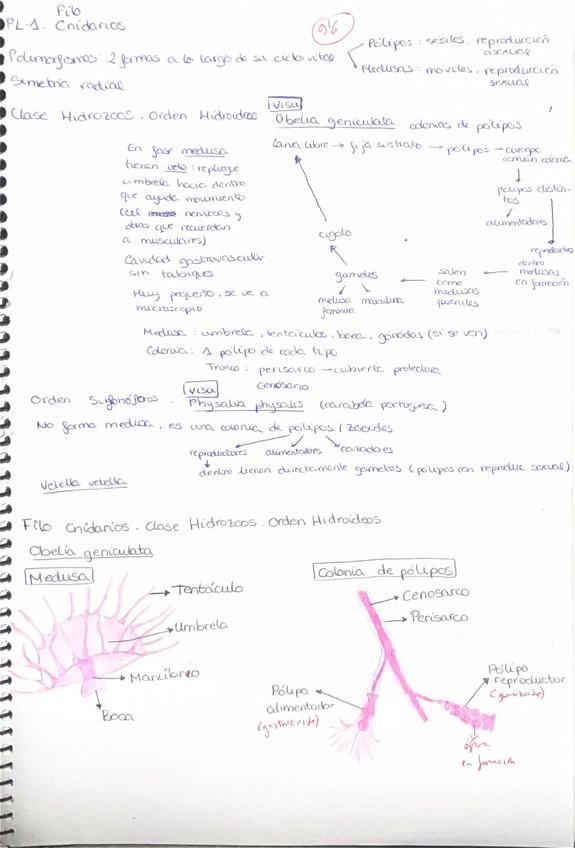 Filo
PL.1. Cnidarios
Polimorfismos: 2 formas a lo largo de su ciclo vital
Pólipos: sésiles, reproducción asexual
Medusas: móviles, reproducción sexual
Simetría radial
visu
Clase Hidrozoos. Orden Hidroideos Obelia geniculata colonias de pólipos
larva libre → fija sustrato → pólipos → cuerpo
común colonia
pólipos distin-
tos
alimentadores
reproductores
dentro
medusas
en formación
salen
como
medusas
juveniles
gametos
medusa
femenina
masculina
cigoto
En fase medusa
tienen velo: repliegue
umbrela hacia dentro
que ayuda movimiento
(cel nerviosas y
otras que recuerdan
a musculares)
Cavidad gastrovascular
sin tabiques
Muy pequeño, se ve a
microscopio
Medusa: umbrela, tentáculos, boca, gónadas (si se ven)
Colonia: 1 pólipo de cada tipo
Tronco: perisarco → cubierta protectora
cenosarco
visu
Orden Sifonóforos. Physalia physalis (carabela portuguesa)
No forma medusa, es una colonia de pólipos / zooides
reproductores alimentadores cazadores
dentro tienen directamente gametos (pólipos con reproduc sexual)
Velella velella
Filo Cnidarios. Clase Hidrozoos. Orden Hidroideos
Obelia geniculata
Medusa
Tentáculo
Umbrela
Manubrio
Boca
Colonia de pólipos
Cenosarco
Perisarco
Pólipo
alimentador
(gastrozoite)
Pólipo
reproductor
(gonozoite)
en formación